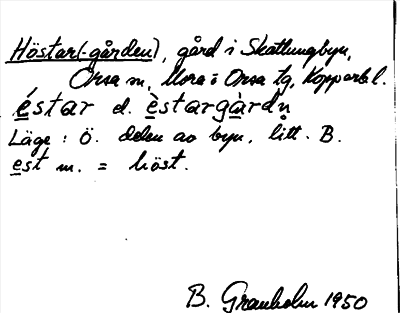 Höstar(-gården), gård i Skattungbyn,
Orsa sn, Mora o Orsa tg, Kopparb l.
éstar el. èstargàrdn̥
Läge: Ö. delen av byn, litt. B.
est m. = höst.
B. Granholm 1950